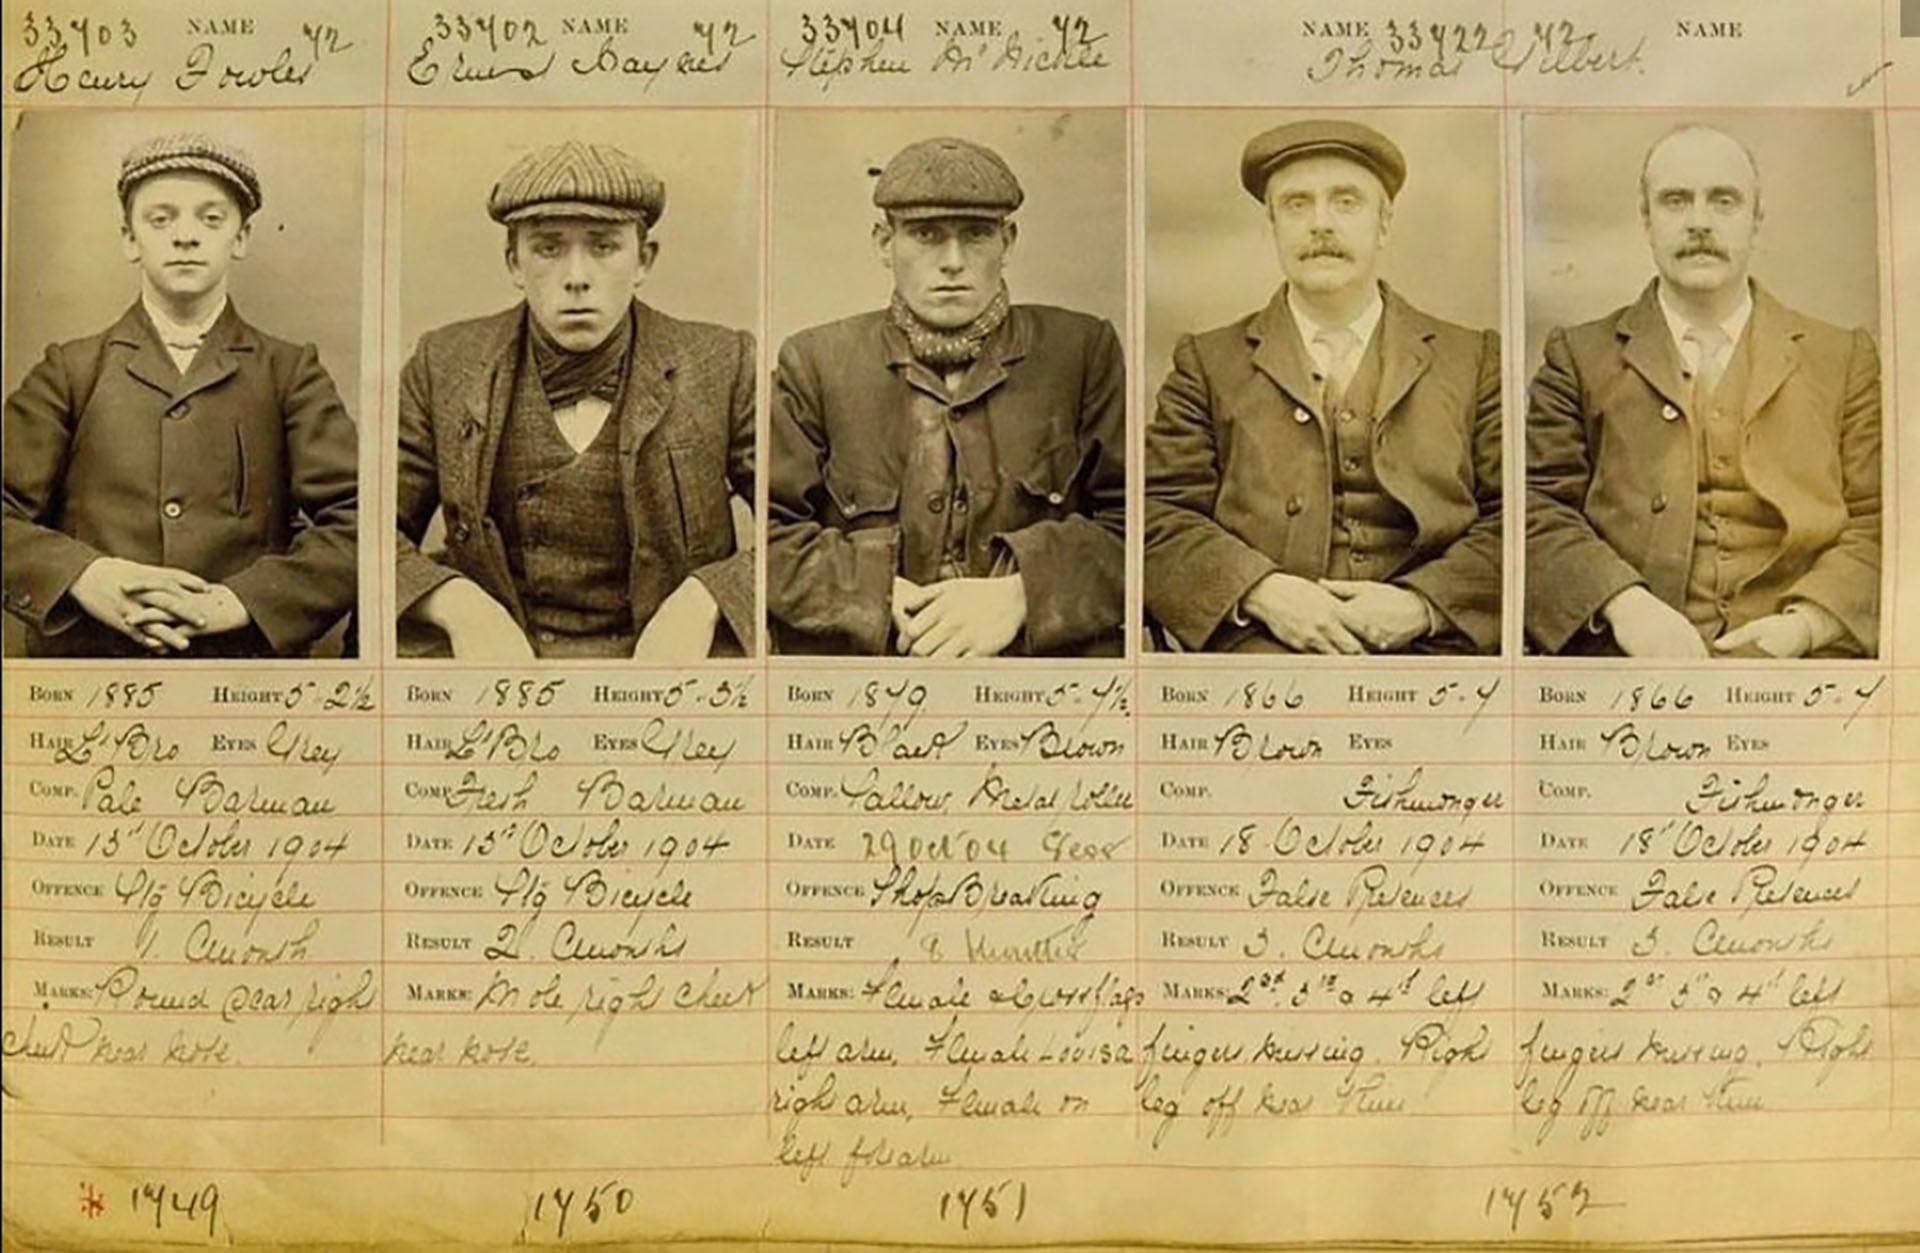 33703 NAME 72
Henry Fowles
33702 NAME 72
Ernest Haynes
33704 NAME 72
Stephen McNickle
NAME 33722 72
Thomas Gilbert.
NAME
BORN 1885 HEIGHT 5-2½
HAIR L'Bro EYES Grey
COMP. Pale Barman
DATE 13th October 1904
OFFENCE Stg Bicycle
RESULT 1. Cmonth
MARKS: Round scar right
cheek near nose.
BORN 1885 HEIGHT 5-3½
HAIR L'Bro EYES Grey
COMP. Fresh Barman
DATE 13th October 1904
OFFENCE Stg Bicycle
RESULT 2. Cmonths
MARKS: Mole right cheek
near nose.
BORN 1879 HEIGHT 5-7½
HAIR Black EYES Brown
COMP. Sallow Metal roller
DATE 29 Oct 04
OFFENCE Shop Breaking
RESULT
MARKS: Female & Cross flags
left arm, Female Louisa
right arm, Female on
left forearm
BORN 1866 HEIGHT 5-7
HAIR Brown EYES
COMP. Fishmonger
DATE 18 October 1904
OFFENCE False Pretences
RESULT 3. Cmonths
MARKS: 2nd 3rd & 4th left
fingers missing. Right
leg off near knee
BORN 1866 HEIGHT 5-7
HAIR Brown EYES
COMP. Fishmonger
DATE 18th October 1904
OFFENCE False Pretences
RESULT 3. Cmonths
MARKS: 2nd 3rd & 4th left
fingers missing. Right
leg off near knee
1749
1750
1751
1752